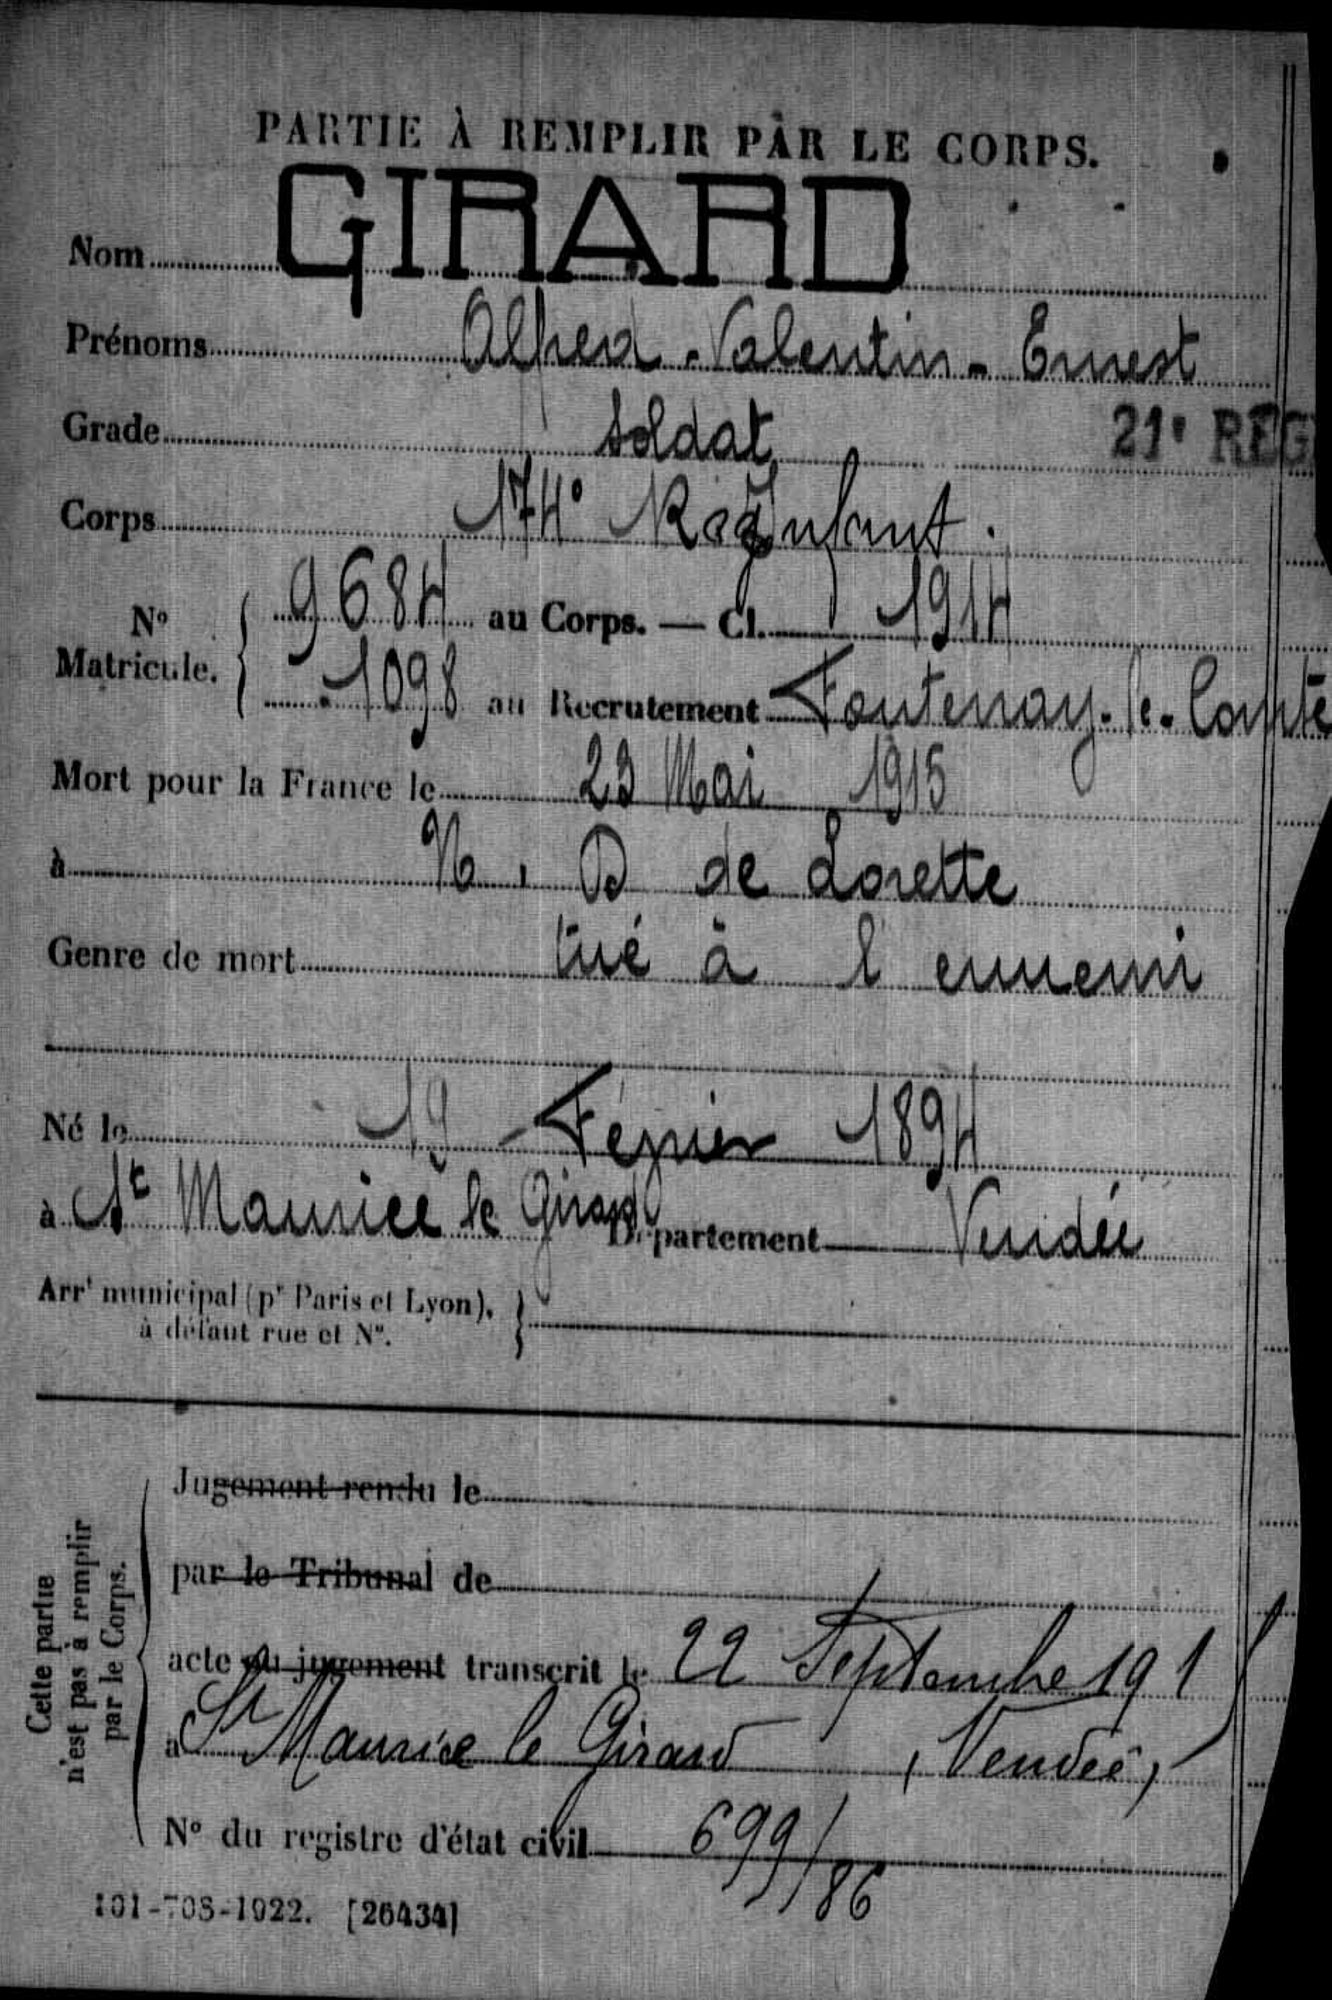 PARTIE À REMPLIR PAR LE CORPS.
Nom GIRARD
Prénoms Alfred - Valentin - Ernest
Grade Soldat
21e REG
Corps 174e Reg Infant.
No Matricule. 9684 au Corps. — Cl. 1914
1098 au Recrutement Fontenay-le-Comte
Mort pour la France le 23 Mai 1915
à N. D de Lorette
Genre de mort tué à l'ennemi
Né le 19 Février 1894
à St Maurice le Girard Département Vendée
Arrt municipal (pr Paris et Lyon),
à défaut rue et No.
Cette partie
n'est pas à remplir
par le Corps.
Jugement rendu le
par le Tribunal de
acte ou jugement transcrit le 22 Septembre 191
à St Maurice le Girard (Vendée)
No du registre d'état civil 699/86
101-708-1922. [26434]